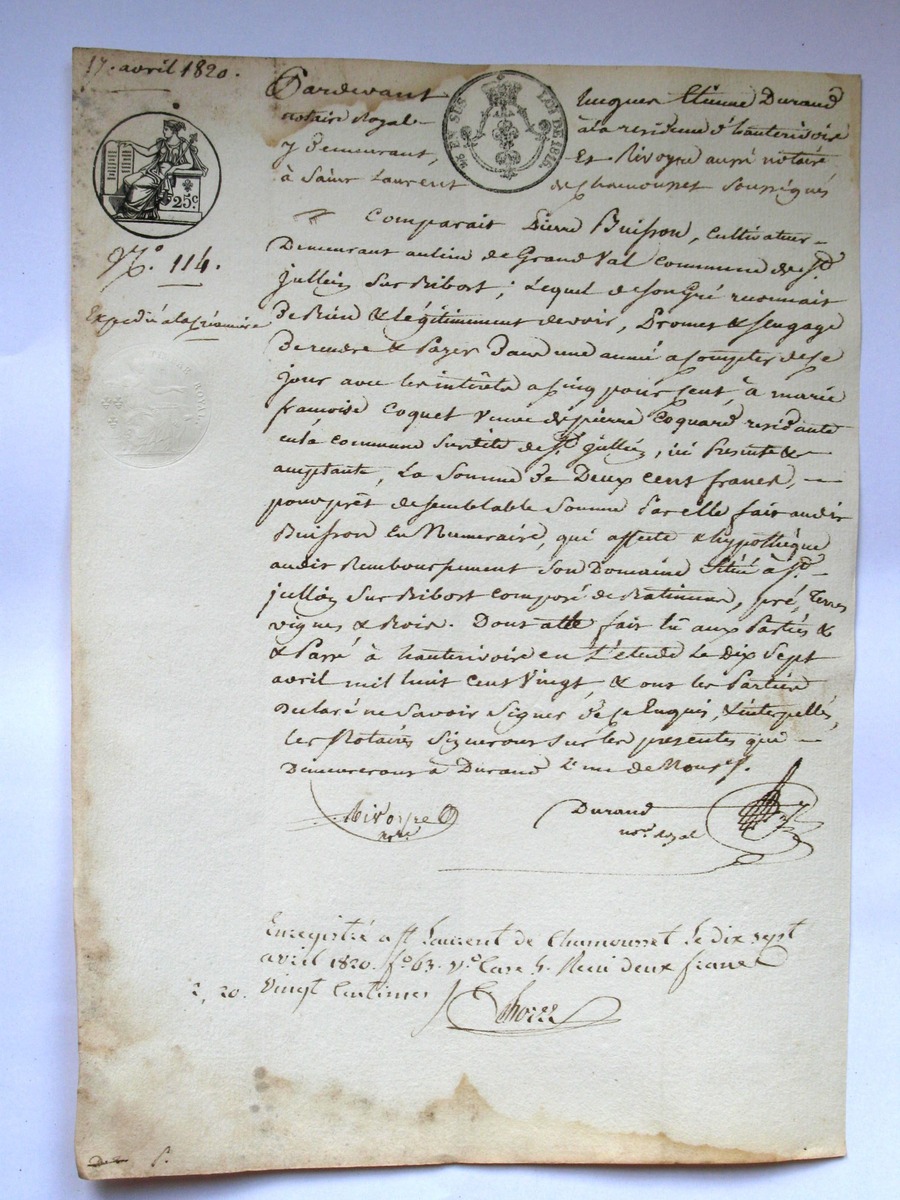 17. avril 1820.
Pardevant Jacques Etienne Durand
notaire Royal à la residence d'hauterivoire
y Demeurant, Et Rivoyre aussi notaire
à Saint Laurent de chamousset Soussignés
Comparait Pierre Buisson, cultivateur
Demeurant au lieu de Grand Val commune de St
jullien Sur Bibost; Lequel de son Gré reconnait
Bien & légitimement devoir, Promet & s'engage
De rendre & Payer Dans une année a compter de ce
jour avec les intérêts a cinq pour cent, à marie
françoise Coquet veuve de pierre Coquard residante
en la commune de St jullien, ici Presente &
acceptante, La Somme de Deux cent francs,
pour prêt de semblable Somme Par elle fait audit
Buisson En Numeraire, qui affecte & hypothèque
audit Remboursement Son Domaine Situé à St
jullien Sur Bibost composé de Batimens, pré, Terres
vignes & Bois. Dont acte fait lû aux Parties &
& Passé à hauterivoire en L'etude Le Dix Sept
avril mil huit cent Vingt, & ont les Parties
Declaré ne Savoir Signer De ce Enquis, & interpellés,
Les Notaires Signeront Sur les presentes qui
Demeureront à Durand L'un de Nous.
EN SUS
LOI DE 1816
25c.
No. 114.
Expedié a la Créancière
Rivoyre
nore
Durand
nore royal
Enregistré a St Laurent de Chamousset Le dix sept
avril 1820. fo 63. Vo Case 5. Reçu deux francs
2, 20. Vingt Centimes